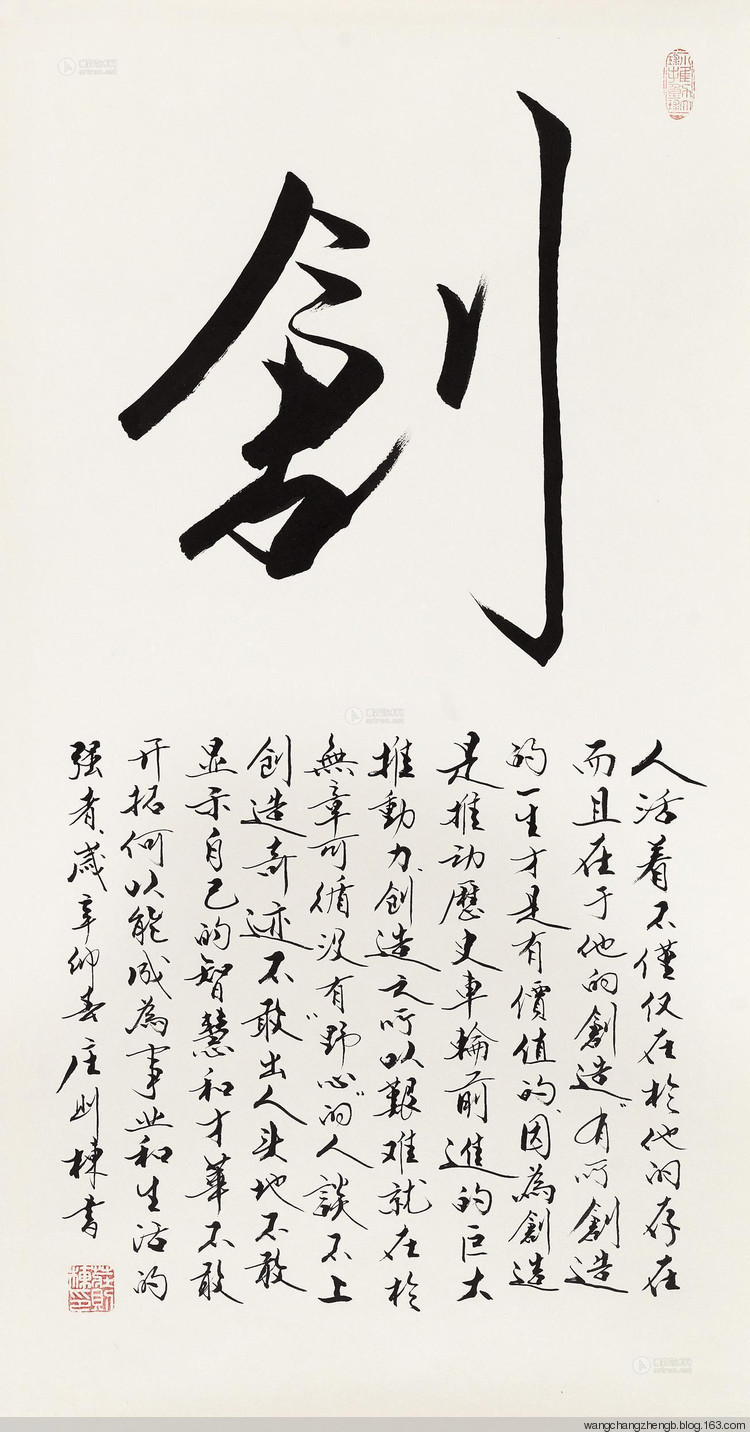 創
人活着不僅仅在於他的存在
而且在于他的創造"有"所創造
的一生才是有價值的、因為創造
是推动歷史車輪前進的巨大
推動力、創造之所以艱难就在於
無章可循没有"野心"的人談不上
创造奇迹不敢出人头地不敢
显示自己的智慧和才華不敢
开拓何以能成為事业和生活的
强者、歲辛卯春庄则棟書
莊則棟印
wangchangzhengb.blog.163.com